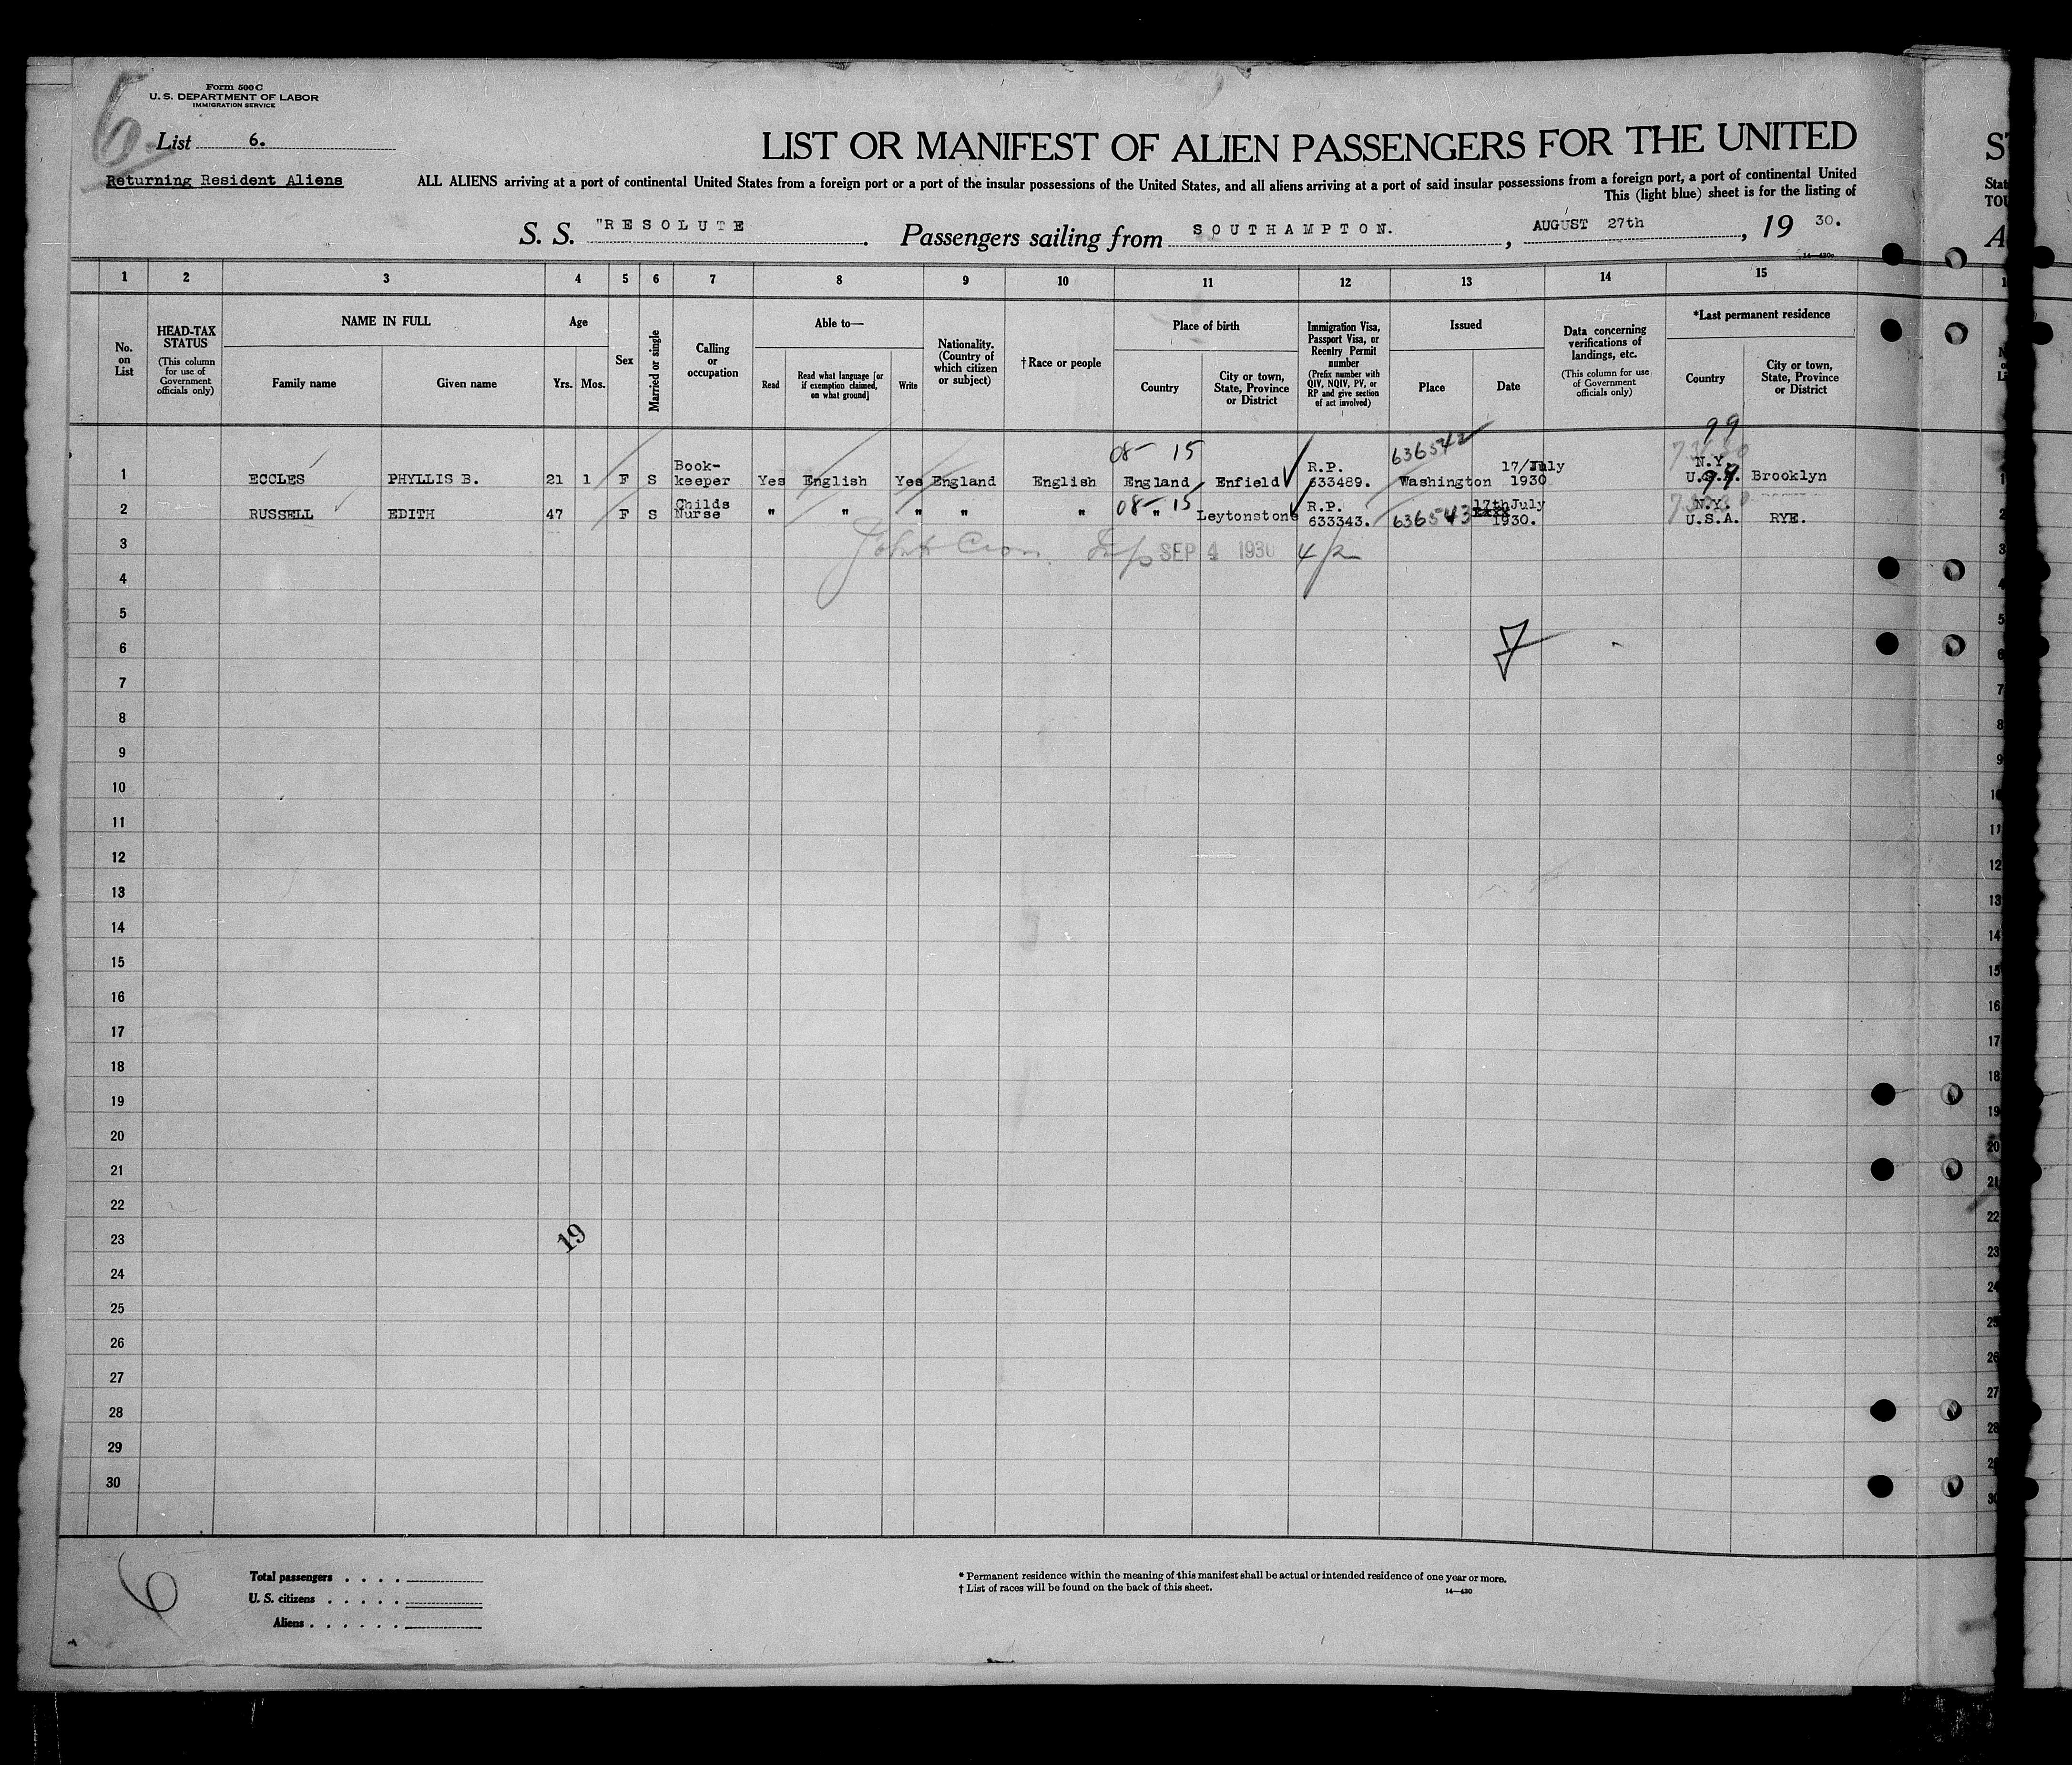 Form 500 C
U. S. DEPARTMENT OF LABOR
IMMIGRATION SERVICE
6
List 6.
Returning Resident Aliens
LIST OR MANIFEST OF ALIEN PASSENGERS FOR THE UNITED
ALL ALIENS arriving at a port of continental United States from a foreign port or a port of the insular possessions of the United States, and all aliens arriving at a port of said insular possessions from a foreign port, a port of continental United
This (light blue) sheet is for the listing of
S. S. "RESOLUTE. Passengers sailing from SOUTHAMPTON., AUGUST 27th, 19 30.
14—430
1 2 3 4 5 6 7 8 9 10 11 12 13 14 15
No. on List
HEAD-TAX STATUS (This column for use of Government officials only)
NAME IN FULL
Family name Given name
Age
Yrs. Mos.
Sex
Married or single
Calling or occupation
Able to—
Read Read what language [or if exemption claimed, on what ground] Write
Nationality. (Country of which citizen or subject)
†Race or people
Place of birth
Country City or town, State, Province or District
Immigration Visa, Passport Visa, or Reentry Permit number (Prefix number with QIV, NQIV, PV, or RP and give section of act involved)
Issued
Place Date
Data concerning verifications of landings, etc. (This column for use of Government officials only)
*Last permanent residence
Country City or town, State, Province or District
99
08- 15 636542
1 ECCLES PHYLLIS B. 21 1 F S Book-keeper Yes English Yes England English England Enfield R.P. 633489. Washington 17/July 1930 N.Y. U.S.A. Brooklyn
99
08- 15
2 RUSSELL EDITH 47 F S Childs Nurse " " " " " " Leytonstone R.P. 633343. 636543 17th July 1930. N.Y. U.S.A. RYE.
3 SEP 4 1930
4
5
6
7
7
8
9
10
11
12
13
14
15
16
17
18
19
20
21
22
23 19
24
25
26
27
28
29
30
6
Total passengers
U. S. citizens
Aliens
* Permanent residence within the meaning of this manifest shall be actual or intended residence of one year or more.
† List of races will be found on the back of this sheet. 14—430